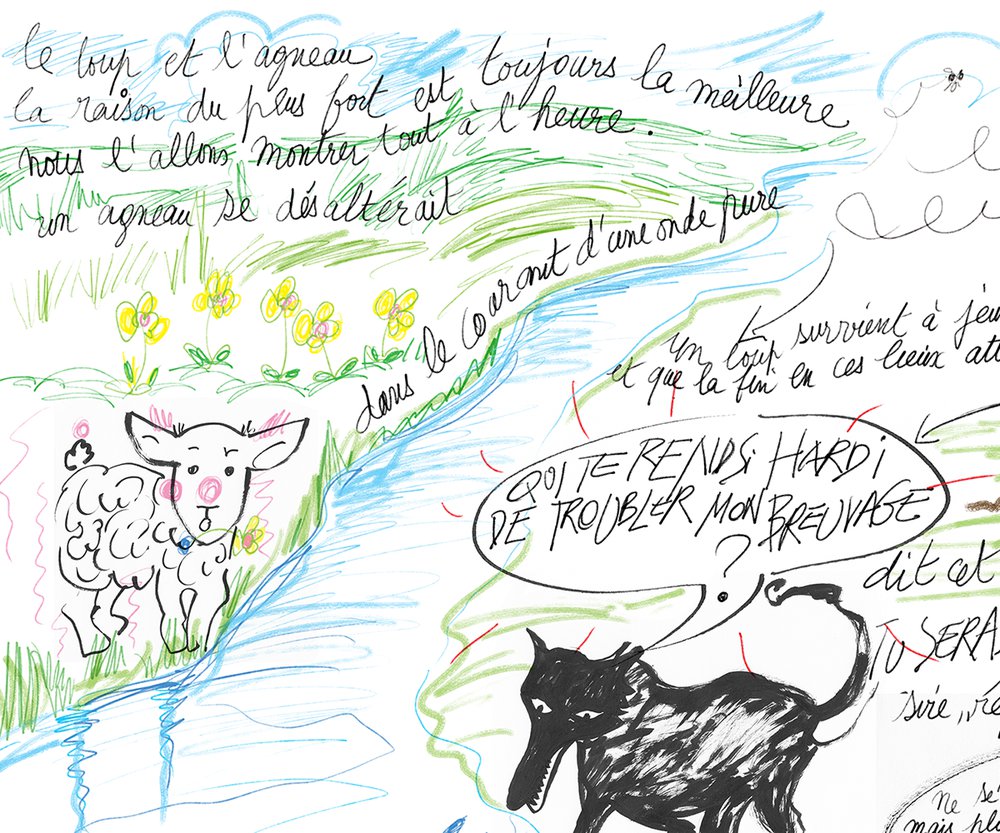 le loup et l'agneau
la raison du plus fort est toujours la meilleure
nous l'allons montrer tout à l'heure.
un agneau se désaltérait
dans le courant d'une onde pure
un loup survient à jeu
et que la fin en ces lieux att
QUI TE RENDS i HARDi
DE TROUBLER MON BREUVAGE
?
dit cet
TU SERA
sire, ré
ne sé
mais pl